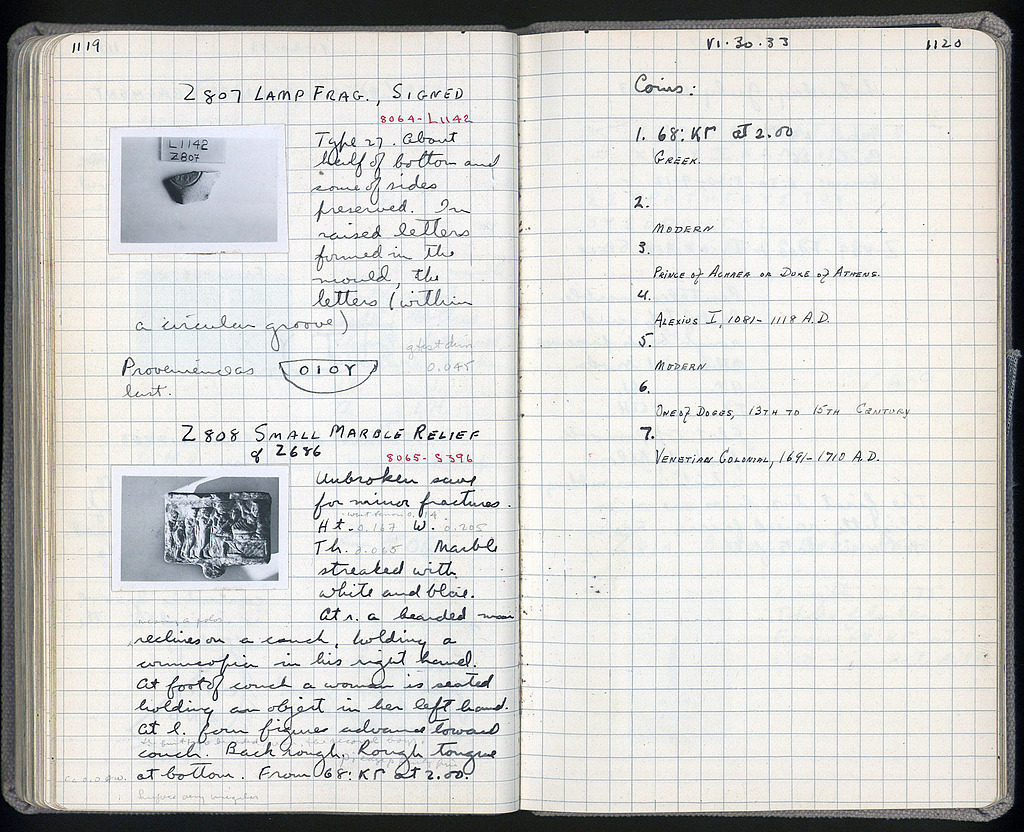 1119
Z 807 LAMP FRAG., SIGNED
8064-L1142
L1142
Z807
Type 27. About
half of bottom and
some of sides
preserved. In
raised letters
formed in the
mould, the
letters (within
a circular groove)
gtest dim
0.045
Provenience as
last.
OIOY
Z 808 SMALL MARBLE RELIEF
cf Z686
8065-S396
Unbroken save
for minor fractures.
Ht. 0.167 W. 0.205
Th. 0.065 Marble
streaked with
white and blue.
At r. a bearded man
reclines on a couch, holding a
cornucopia in his right hand.
At foot of couch a woman is seated
holding an object in her left hand.
At l. four figures advance toward
couch. Back rough. Rough tongue
at bottom. From 68:ΚΓ at 2.00.
VI·30·33
1120
Coins:
1. 68:ΚΓ at 2.00
GREEK.
2.
MODERN
3.
PRINCE OF ACHAEA OR DUKE OF ATHENS.
4.
ALEXIUS I, 1081-1118 A.D.
5.
MODERN
6.
ONE OF DOGES, 13TH TO 15TH CENTURY
7.
VENETIAN COLONIAL, 1691-1710 A.D.